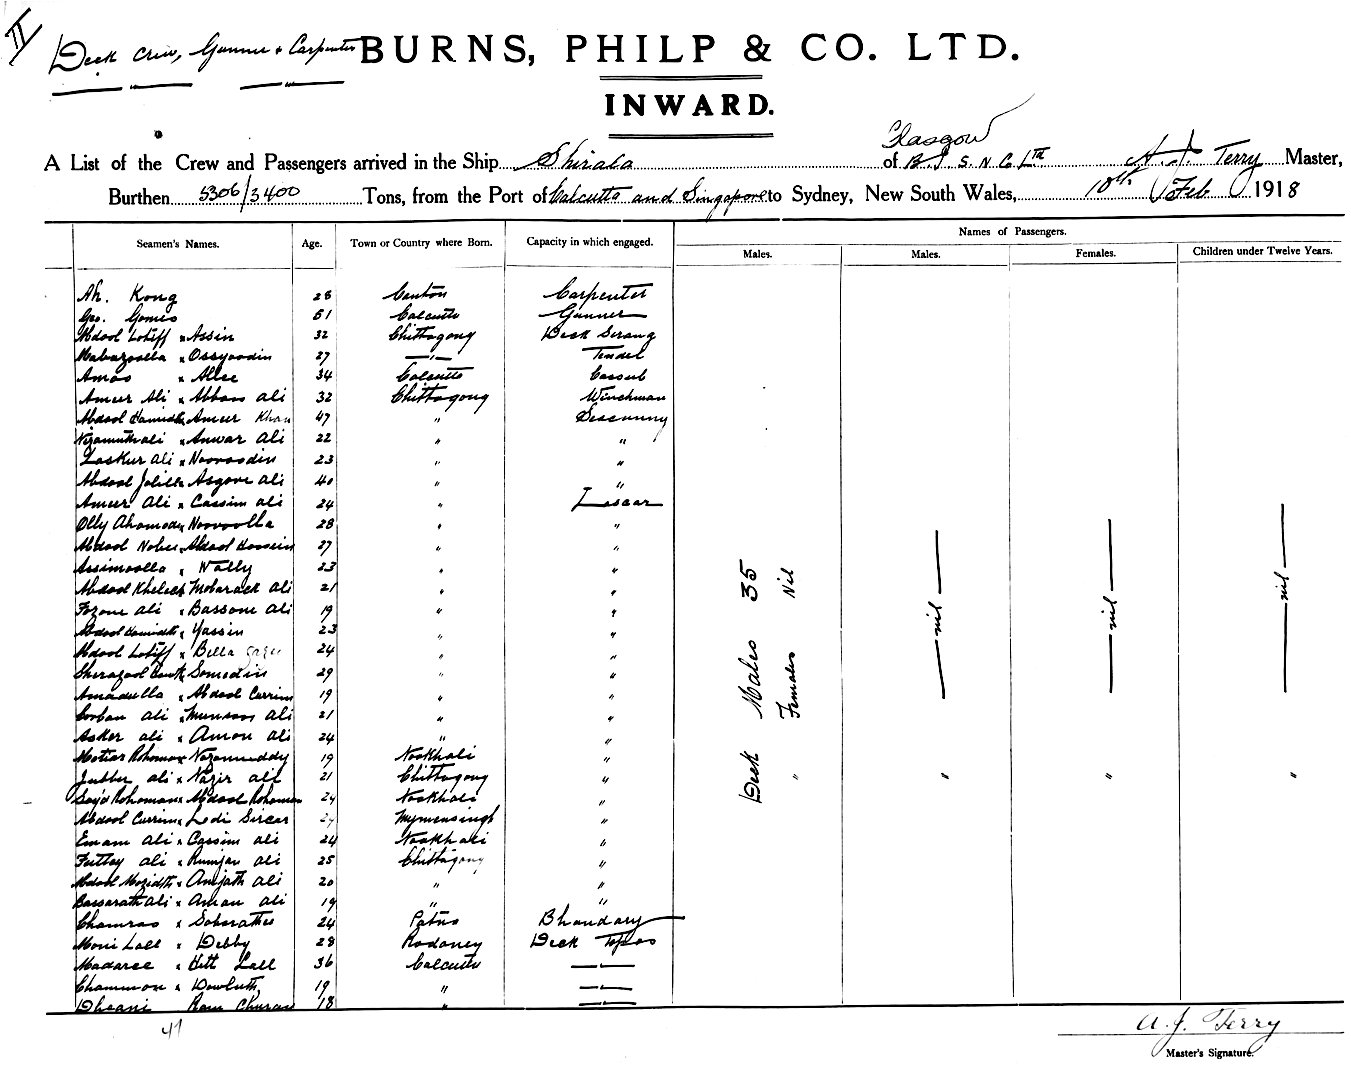 II
Deck Crew, Gunner & Carpenter
BURNS, PHILP & CO. LTD.
INWARD.
Glasgow
A List of the Crew and Passengers arrived in the Ship Shirala of B. I. S. N. C. Ltd A. J. Terry Master,
Burthen 5306/3400 Tons, from the Port of Calcutta and Singapore to Sydney, New South Wales, 10th Feb 1918
Names of Passengers.
Seamen's Names. Age. Town or Country where Born. Capacity in which engaged. Males. Males. Females. Children under Twelve Years.
Ah. Kong 28 Canton Carpenter
Geo. Gomes 51 Calcutta Gunner
Abdool Lotiff x Assin 32 Chittagong Deck Serang
Mabazoolla x Ossyoodin 27 —"— Tindel
Amoo x Allee 34 Calcutta Cassub
Ameer Ali x Abbas Ali 32 Chittagong Winchman
Abdool Hamidh x Ameer Khan 47 "
Nizamuth ali x Anwar Ali 22 " "
Laskur Ali x Nooroodin 23 " "
Abdool Jolill x Asgore Ali 40 " "
Ameer Ali x Cassim Ali 24 " Lascar
Olly Ahamode x Noovoolla 28 " "
Abdool Nobee x Abdool Hossein 27 " "
Assimoolla x Wally 23 " "
Abdool Khaleck x Mobarack Ali 21 " "
Fozone Ali x Bassone Ali 19 " "
Abdool Hamidh x Yassin 23 " "
Abdool Lotiff x Bella Gazee 24 " "
Somedin 29 " "
Amadulla x Abdool Currim 19 " "
Corban Ali x Munsoor Ali 21 " "
Asker Ali x Amon Ali 24 " "
Motiar Rohoman x Nozamuddy 19 Noakhali "
Jubber Ali x Nazir Ali 21 Chittagong "
Sayd Rohoman x Abdool Rohoman 24 Noakhali "
Abdool Currim x Ledi Sircar 27 Mymensingh "
Emam Ali x Cassim Ali 24 Noakhali "
Futtey Ali x Rumjan Ali 25 Chittagong "
Abdool Mozidth x Amjath Ali 20 " "
Bassarath Ali x Aman Ali 19 " "
Chamroo x 24 Patna Bhandary
Moni Lall x Debby 28 Rodaney Deck Topas
Madaree x Hett Lall 36 Calcutta —"—
Chammon x Dowluth 19 " —"—
Dhoani Ram Churan 18 " —"—
Deck Males 35
" Females Nil
— nil — "
— nil — "
— nil — "
41
A. J. Terry
Master's Signature.